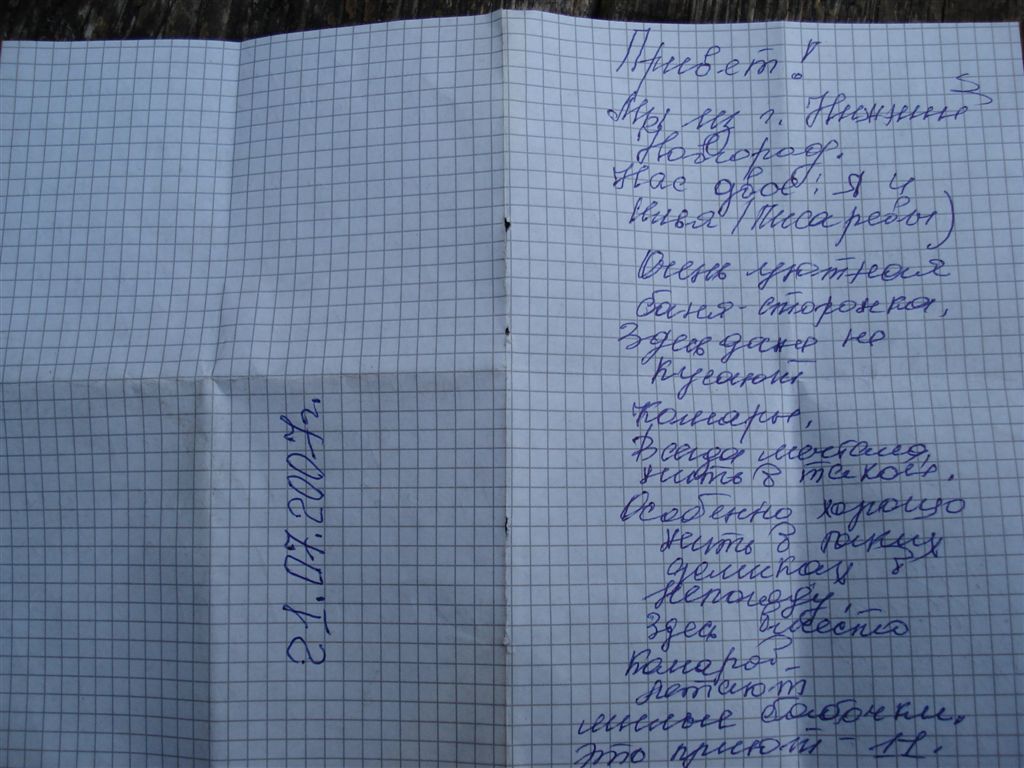 21.07.2007г.
Привет!
Мы из г. Нижний
Новгород.
Нас двое: Я и
Илья (Писаревы)
Очень уютная
баня-сторожка,
Здесь даже не
кусают
комары.
Всегда мечтала
жить в такой.
Особенно хорошо
жить в таких
домиках в
непогоду.
Здесь вместо
комаров
летают
милые бабочки.
Это приют - 11.